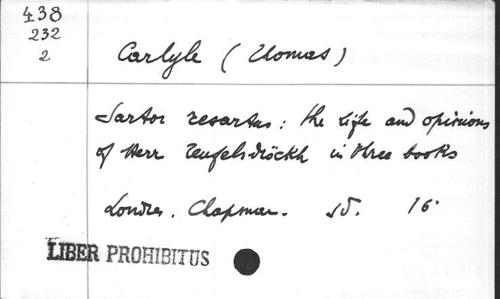 438
232
2
Carlyle (Thomas)
Sartor resartus: the life and opinions
of Herr Teufelsdröckh in three books
Londres. Chapman. sd. 16°
LIBER PROHIBITUS